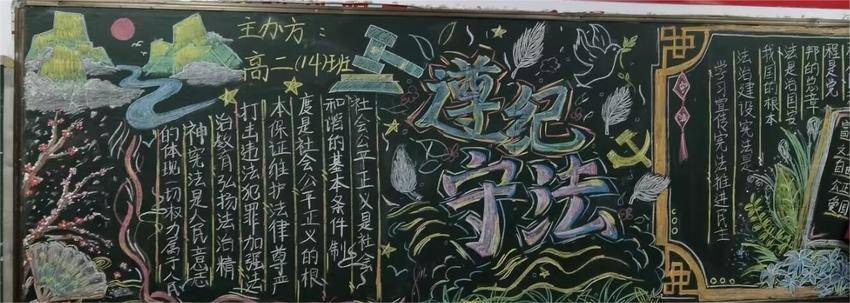 主办方：
高二(14)班
遵纪
守法
社会公平正义是社会
和谐的基本条件 制
度是社会公平正义的根
本保证维护法律尊严
打击违法犯罪加强法
治教育弘扬法治精
神宪法是人民意志
的体现一切权力属于人民
学习宣传宪法推进民主
法治建设宪法是
我国的根本
法是治国安
邦的宪章
程是宪